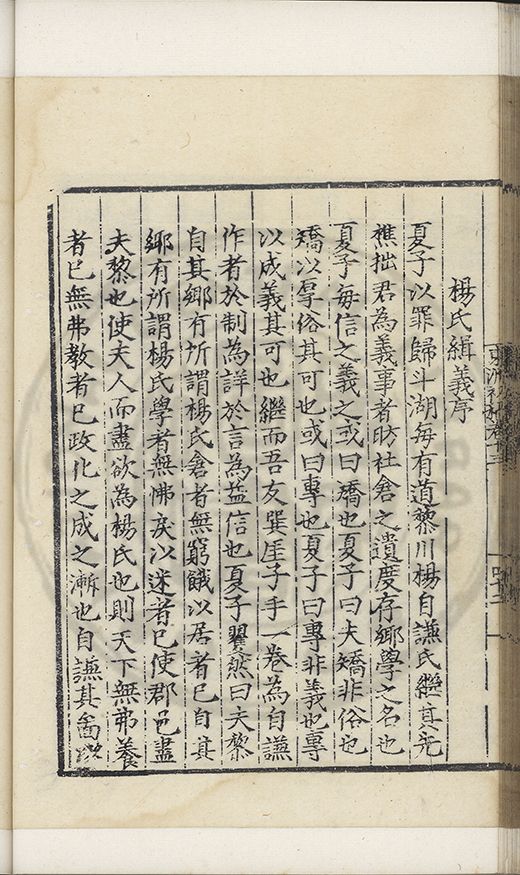 楊氏緝義序
夏子以罪歸斗湖每有道黎川楊自謙氏繼其先
樵拙君為義事者昉社倉之遺度存鄉學之名也
夏子每信之義之或曰矯也夏子曰夫矯非俗也
矯以厚俗其可也或曰專也夏子曰專非義也專
以成義其可也繼而吾友巽厓子手一卷為自謙
作者於制為詳於言為益信也夏子翼然曰夫黎
自其鄉有所謂楊氏倉者無窮餓以居者已自其
鄉有所謂楊氏學者無怫戾以迷者已使郡邑盡
夫黎也使夫人而盡欲為楊氏也則天下無弗養
者已無弗教者已政化之成之漸也自謙其啚